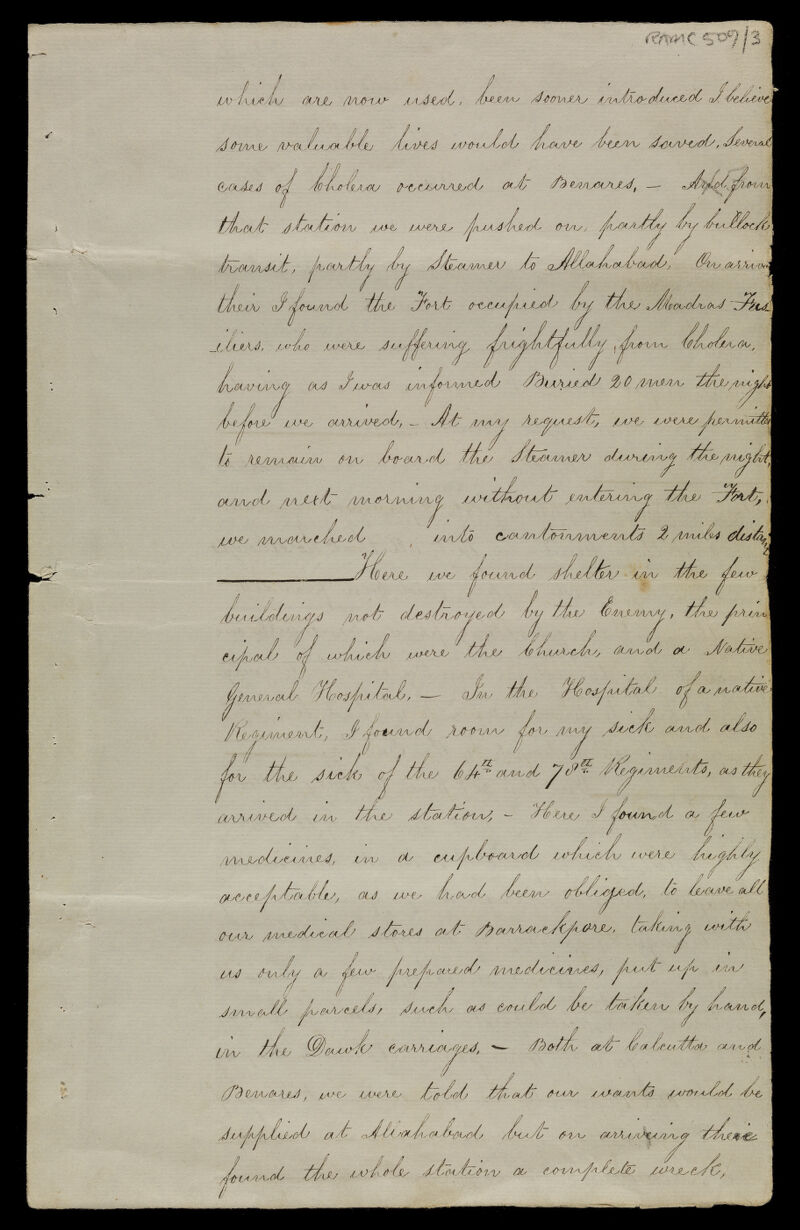 RAMC 509/3
which are now used, been sooner introduced I believe
some valuable lives would have been saved. Several
cases of Cholera occurred at Benares, — And from
that station we were pushed on, partly by bullock
transit, partly by Steamer to Allahabad. On
their I found the Fort occupied by the Madras Fus
iliers, who were suffering frightfully, from Cholera,
having as I was informed Buried 20 men the night
before we arrived, — At my request, we were
to remain on board the Steamer during the night,
and next morning without entering the Fort,
we marched into cantonments 2 miles
Here we found shelter in the few
buildings not destroyed by the Enemy, the prin
cipal of which were the Church, and a Native
General Hospital, — In the Hospital of a native
Regiment, I found room for my sick and also
for the sick of the 64th and 78th Regiments, as they
arrived in the station, — Here I found a few
medicines, in a cupboard which were highly
acceptable, as we had been obliged, to leave all
our medical stores at Barrackpore, taking with
us only a few prepared medicines, put up in
small parcels, such as could be taken by hand,
in the Dawk carriages, — Both at Calcutta and
Benares, we were told that our wants would be
supplied at Allahabad but on arriving there
found the whole station a complete wreck,